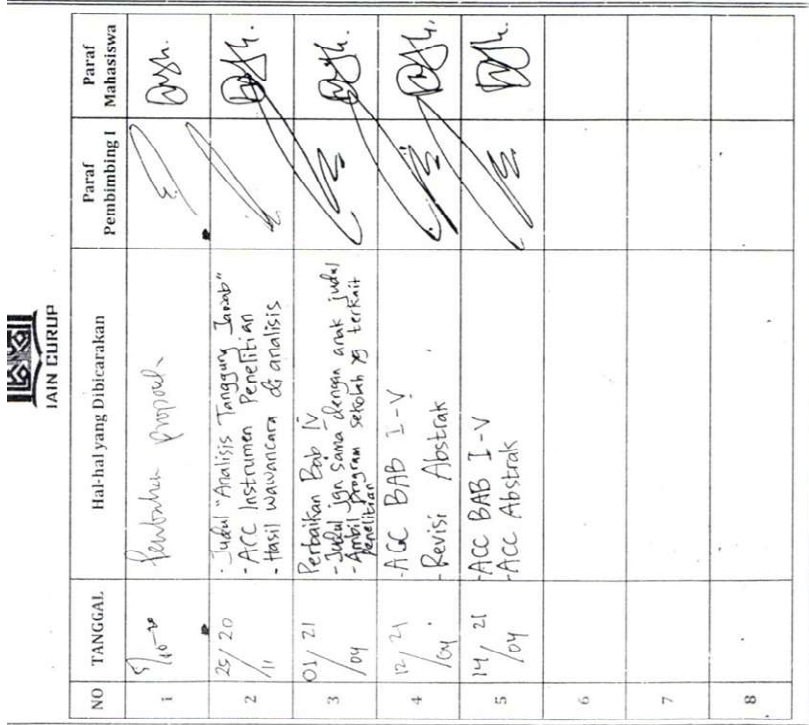 IAIN CURUP
NO TANGGAL Hal-hal yang Dibicarakan Paraf Pembimbing I Paraf Mahasiswa
1 proposal
2 25/20 /11 - Judul "Analisis Tanggung Jawab"
- ACC Instrumen Penelitian
- Hasil wawancara di analisis
3 01/21 /04 Perbaikan Bab IV
- Judul jgn sama dengan anak judul
- Ambil program sekolah yg terkait
penelitian
4 12/21 /04 - ACC BAB I-V
- Revisi Abstrak
5 14/21 /04 - ACC BAB I-V
- ACC Abstrak
6
7
8